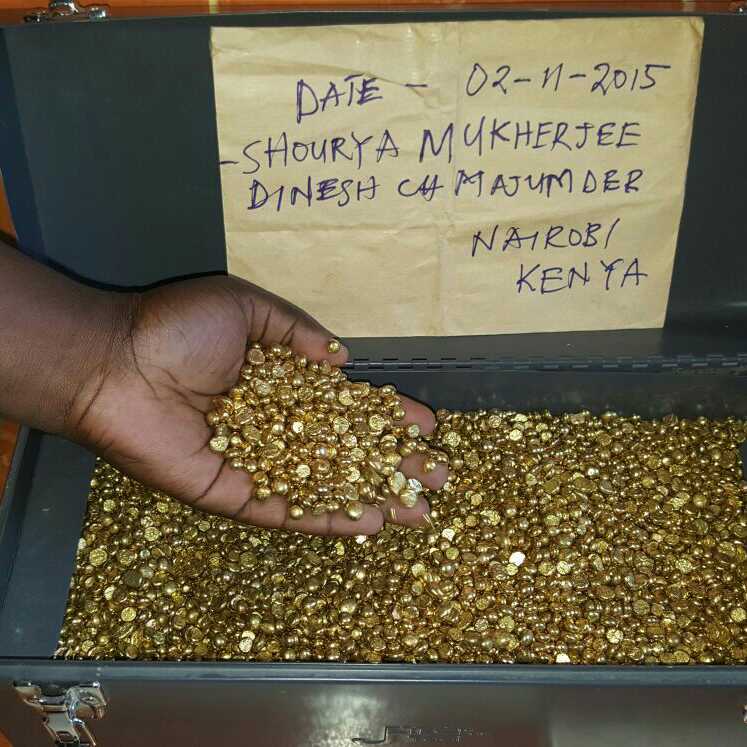 DATE - 02-11-2015
-SHOURYA MUKHERJEE
DINESH CH MAJUMDER
NAIROBI
KENYA